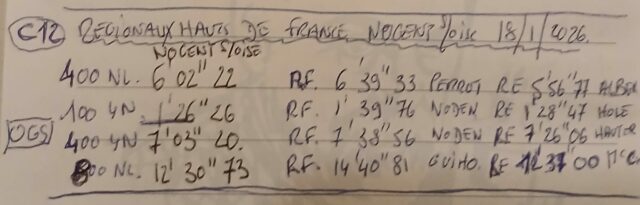 C12 REGIONAUX HAUTS DE FRANCE NOGENT S/OISE 18/1/2026.
NOGENT S/OISE
400 NL. 6 02" 22 RF. 6'39"33 PERROT RE 5'56"77 ALBER
100 4N 1'26"26 RF. 1'39"76 NODEN RE 1'28"47 HOLE
OGS 400 4N 7'03" 20. RF. 7'38"56 NODEN RE 7'26"06
800 NL. 12'30"73 RF. 14'40"81 GUIHO. RE 00